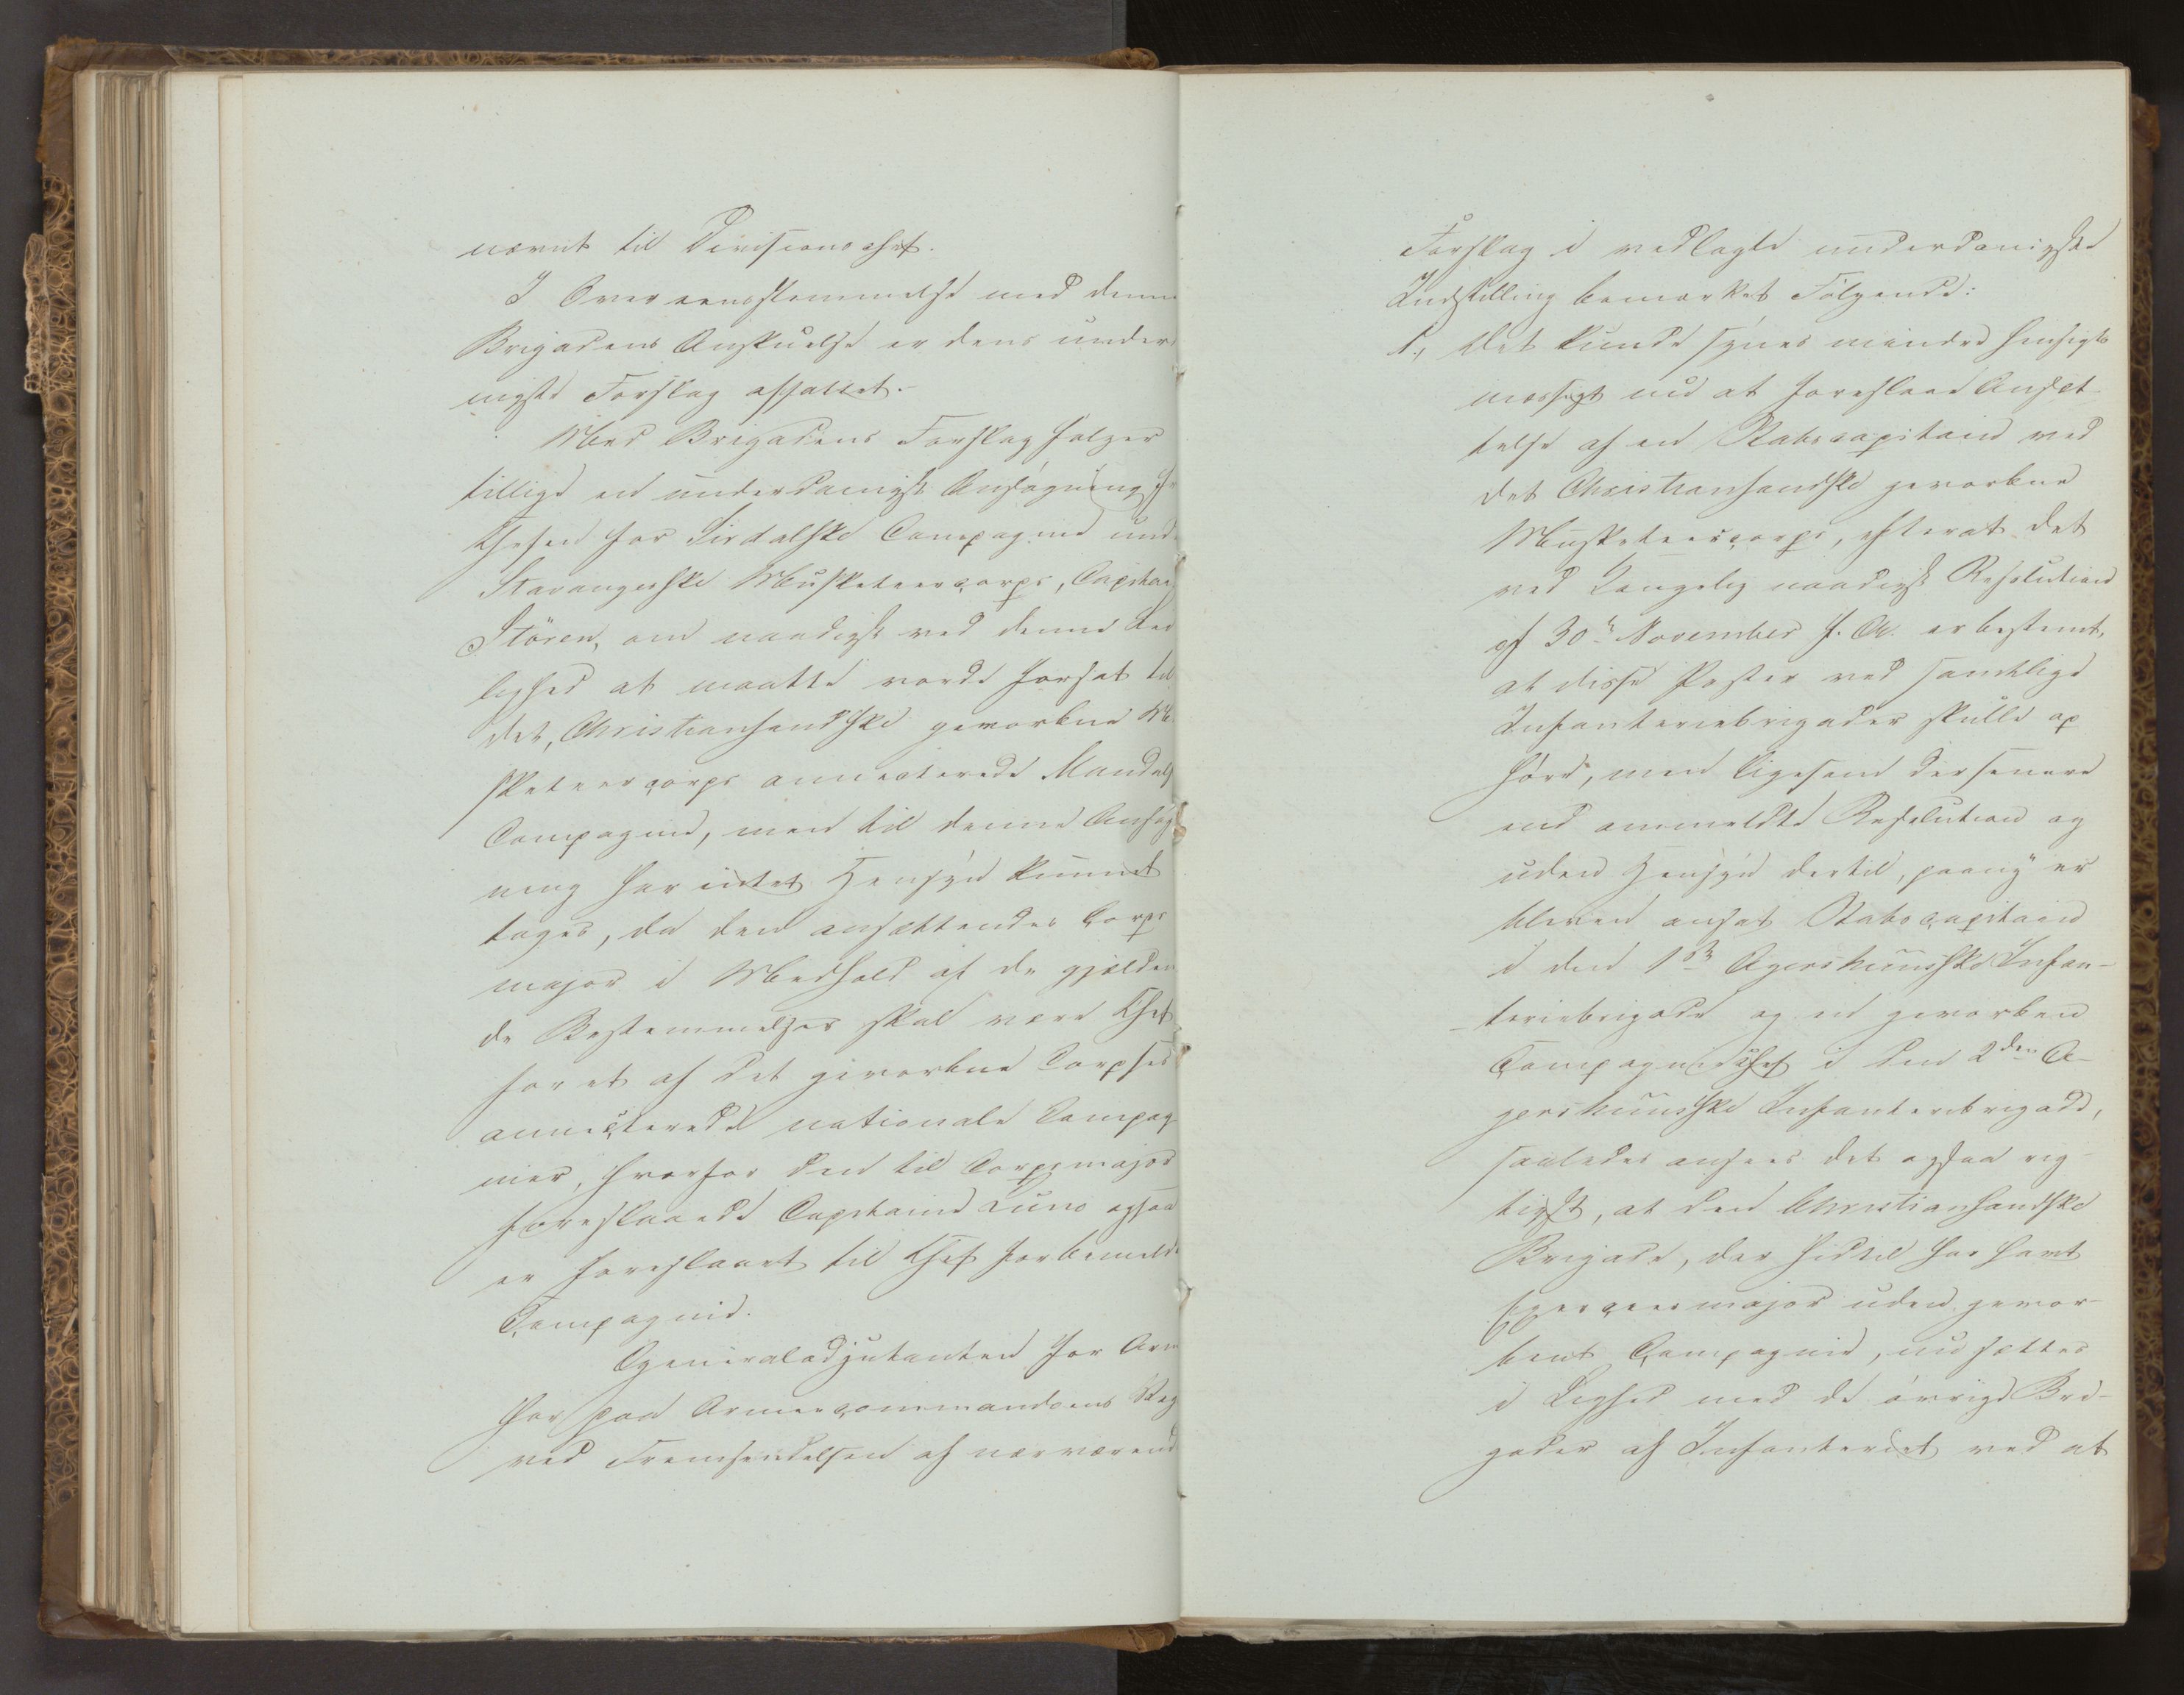 nævnt til Divisionschef.
I Overeensstemmelse med denne
Brigadens Anskuelse er dens under
nigste Forslag affattet.
Med Brigadens Forslag følger
tillige en underdanigst Ansøgning fr
Chefen for Sirdalske Compagnie und
Stavangerske Musketeercorps, Capitai
Stören, om naadigst ved denne Lei
lighed at maatte vorde forsat til
det, Christiansandske gevorbne Mu
sketeercorps annecterede Mandalsk
Compagnie, men til denne Ansøg
ning har intet Hensyn kunnet
tages, da den ansættendes Corps
major i Medhold af de gjælden
de Bestemmelser skal være Chef
for et af det gevorbne Corpses
annecterede nationale Compag
nier, hvorfor den til Corpsmajor
foreslaaede Capitaine Juno ogsaa
er foreslaaet til Chef for bemeldte
Compagnie.
Generaladjutanten for Arm
har paa Armeecommandoens Veg
ved Fremsendelsen af nærværend
Forslag i vedlagte underdanigste
Indstilling bemærket Følgende:
1., Det kunde synes mindre hensigts
mæssigt nu at foreslaae Ansæt-
telse af en Stabscapitain ved
det Christiansandske gevorbne
Musketeercorps, efterat det
ved Kongelig naadigst Resolution
af 30te November f. A. er bestemt,
at disse Poster ved samtlige
Infanteriebrigader skulle op
høre, men ligesom der senere
end ommeldte Resolution og
uden Hensyn dertil, paany er
bleven ansat Stabscapitain
i den 1ste Agershuusske Infan-
teriebrigade og en gevorben
Compagniechef i den 2den A-
gershuusske Infanteribrigade,
saaledes ansees det ogsaa rig-
tigst, at den Christiansandske
Brigade, der hidtil har havt
Exerceermajor uden gevor-
bent Compagnie, nu sættes
i Lighed med de øvrige Bri-
gader af Infanteriet ved at